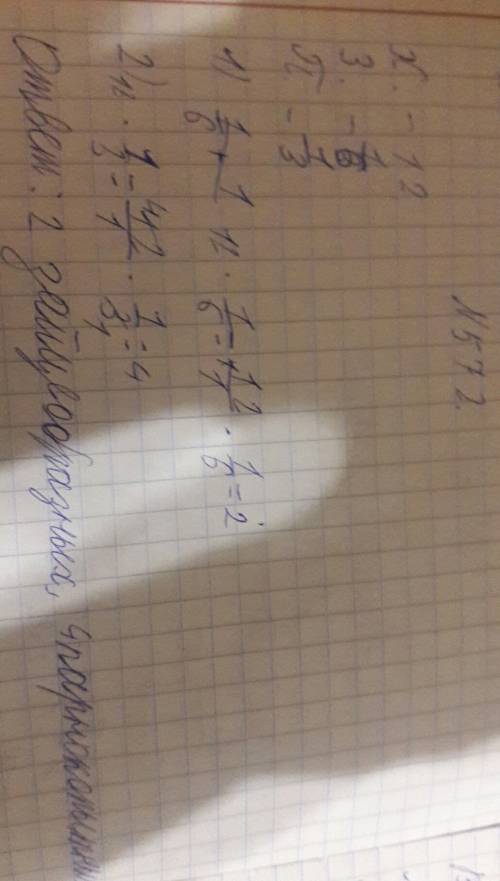 N 572.
Х. - 12
З. - 1/6
П - 1/3
1) 1/6 1 12 · 1/6 = 12/1 · 1/6 = 2
2) 12 · 1/3 = 12/1 · 1/3 = 4
Ответ: 2 зайцеобразных, 4 парнокопытных